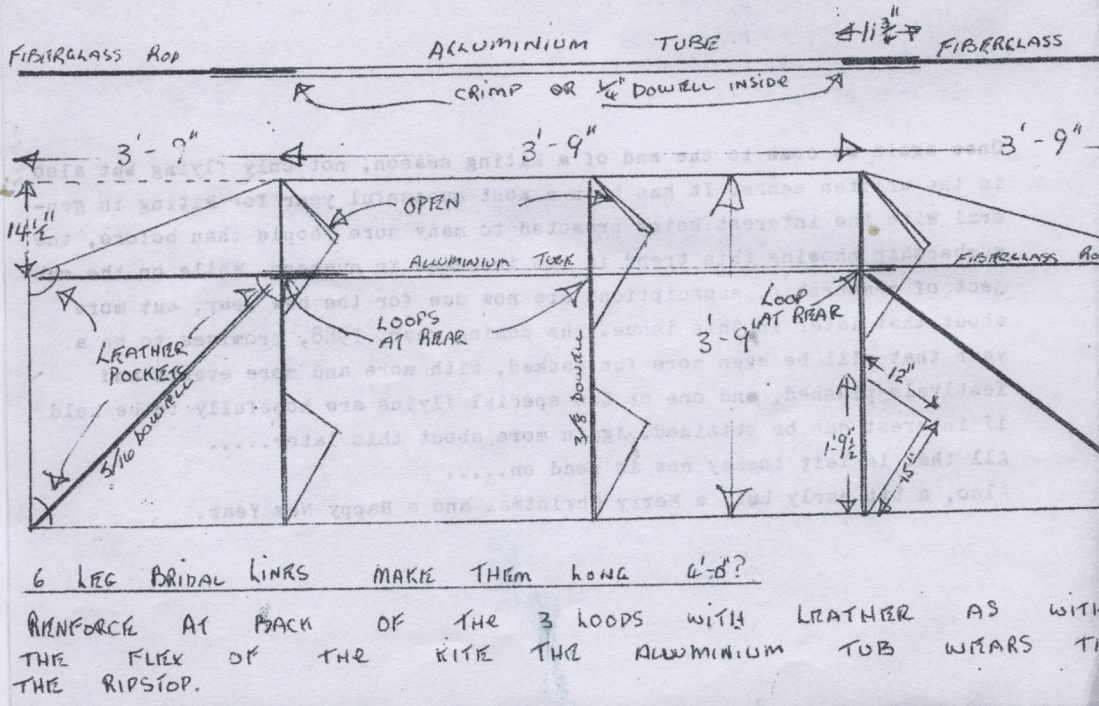 11 3/4"
FIBERGLASS ROD ALLUMINIUM TUBE FIBERGLASS
CRIMP OR 1/4" DOWELL INSIDE
3'-9" 3'-9" 3'-9"
14 1/2"
OPEN
ALLUMINIUM TUBE
FIBERGLASS RO
LOOPS
AT REAR
LOOP
AT REAR
3'-9"
LEATHER
POCKETS
5/16 DOWELL
3/8 DOWELL
12"
1'-9 1/2
15"
6 LEG BRIDAL LINES MAKE THEM LONG 4'-0"?
RENFORCE AT BACK OF THE 3 LOOPS WITH LEATHER AS WITH
THE FLEX OF THE KITE THE ALLUMINIUM TUB WEARS TH
THE RIPSTOP.